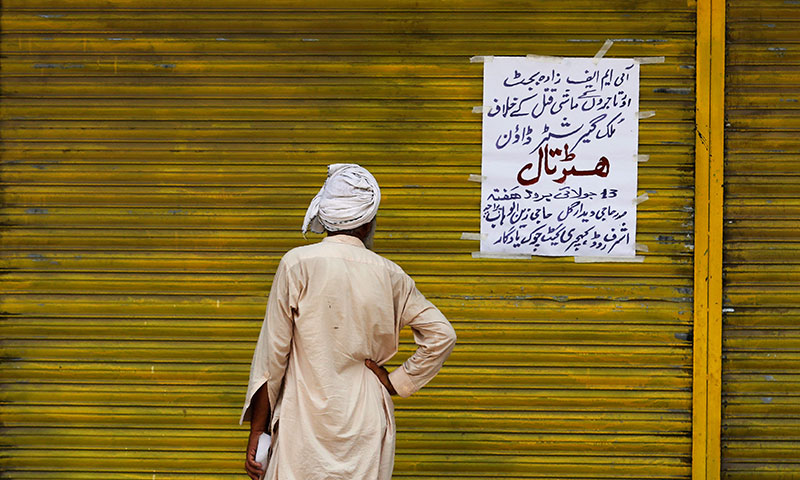 آئی ایم ایف زادہ بجٹ
اور تاجروں کے معاشی قتل کے خلاف
مُلک گیر شٹر ڈاؤن
ھڑتال
13 جولائی بروز ھفتہ
صدر حاجی دیدار گل حاجی زین الوہاب
اشرف روڈ کچہری گیٹ چوک یادگار